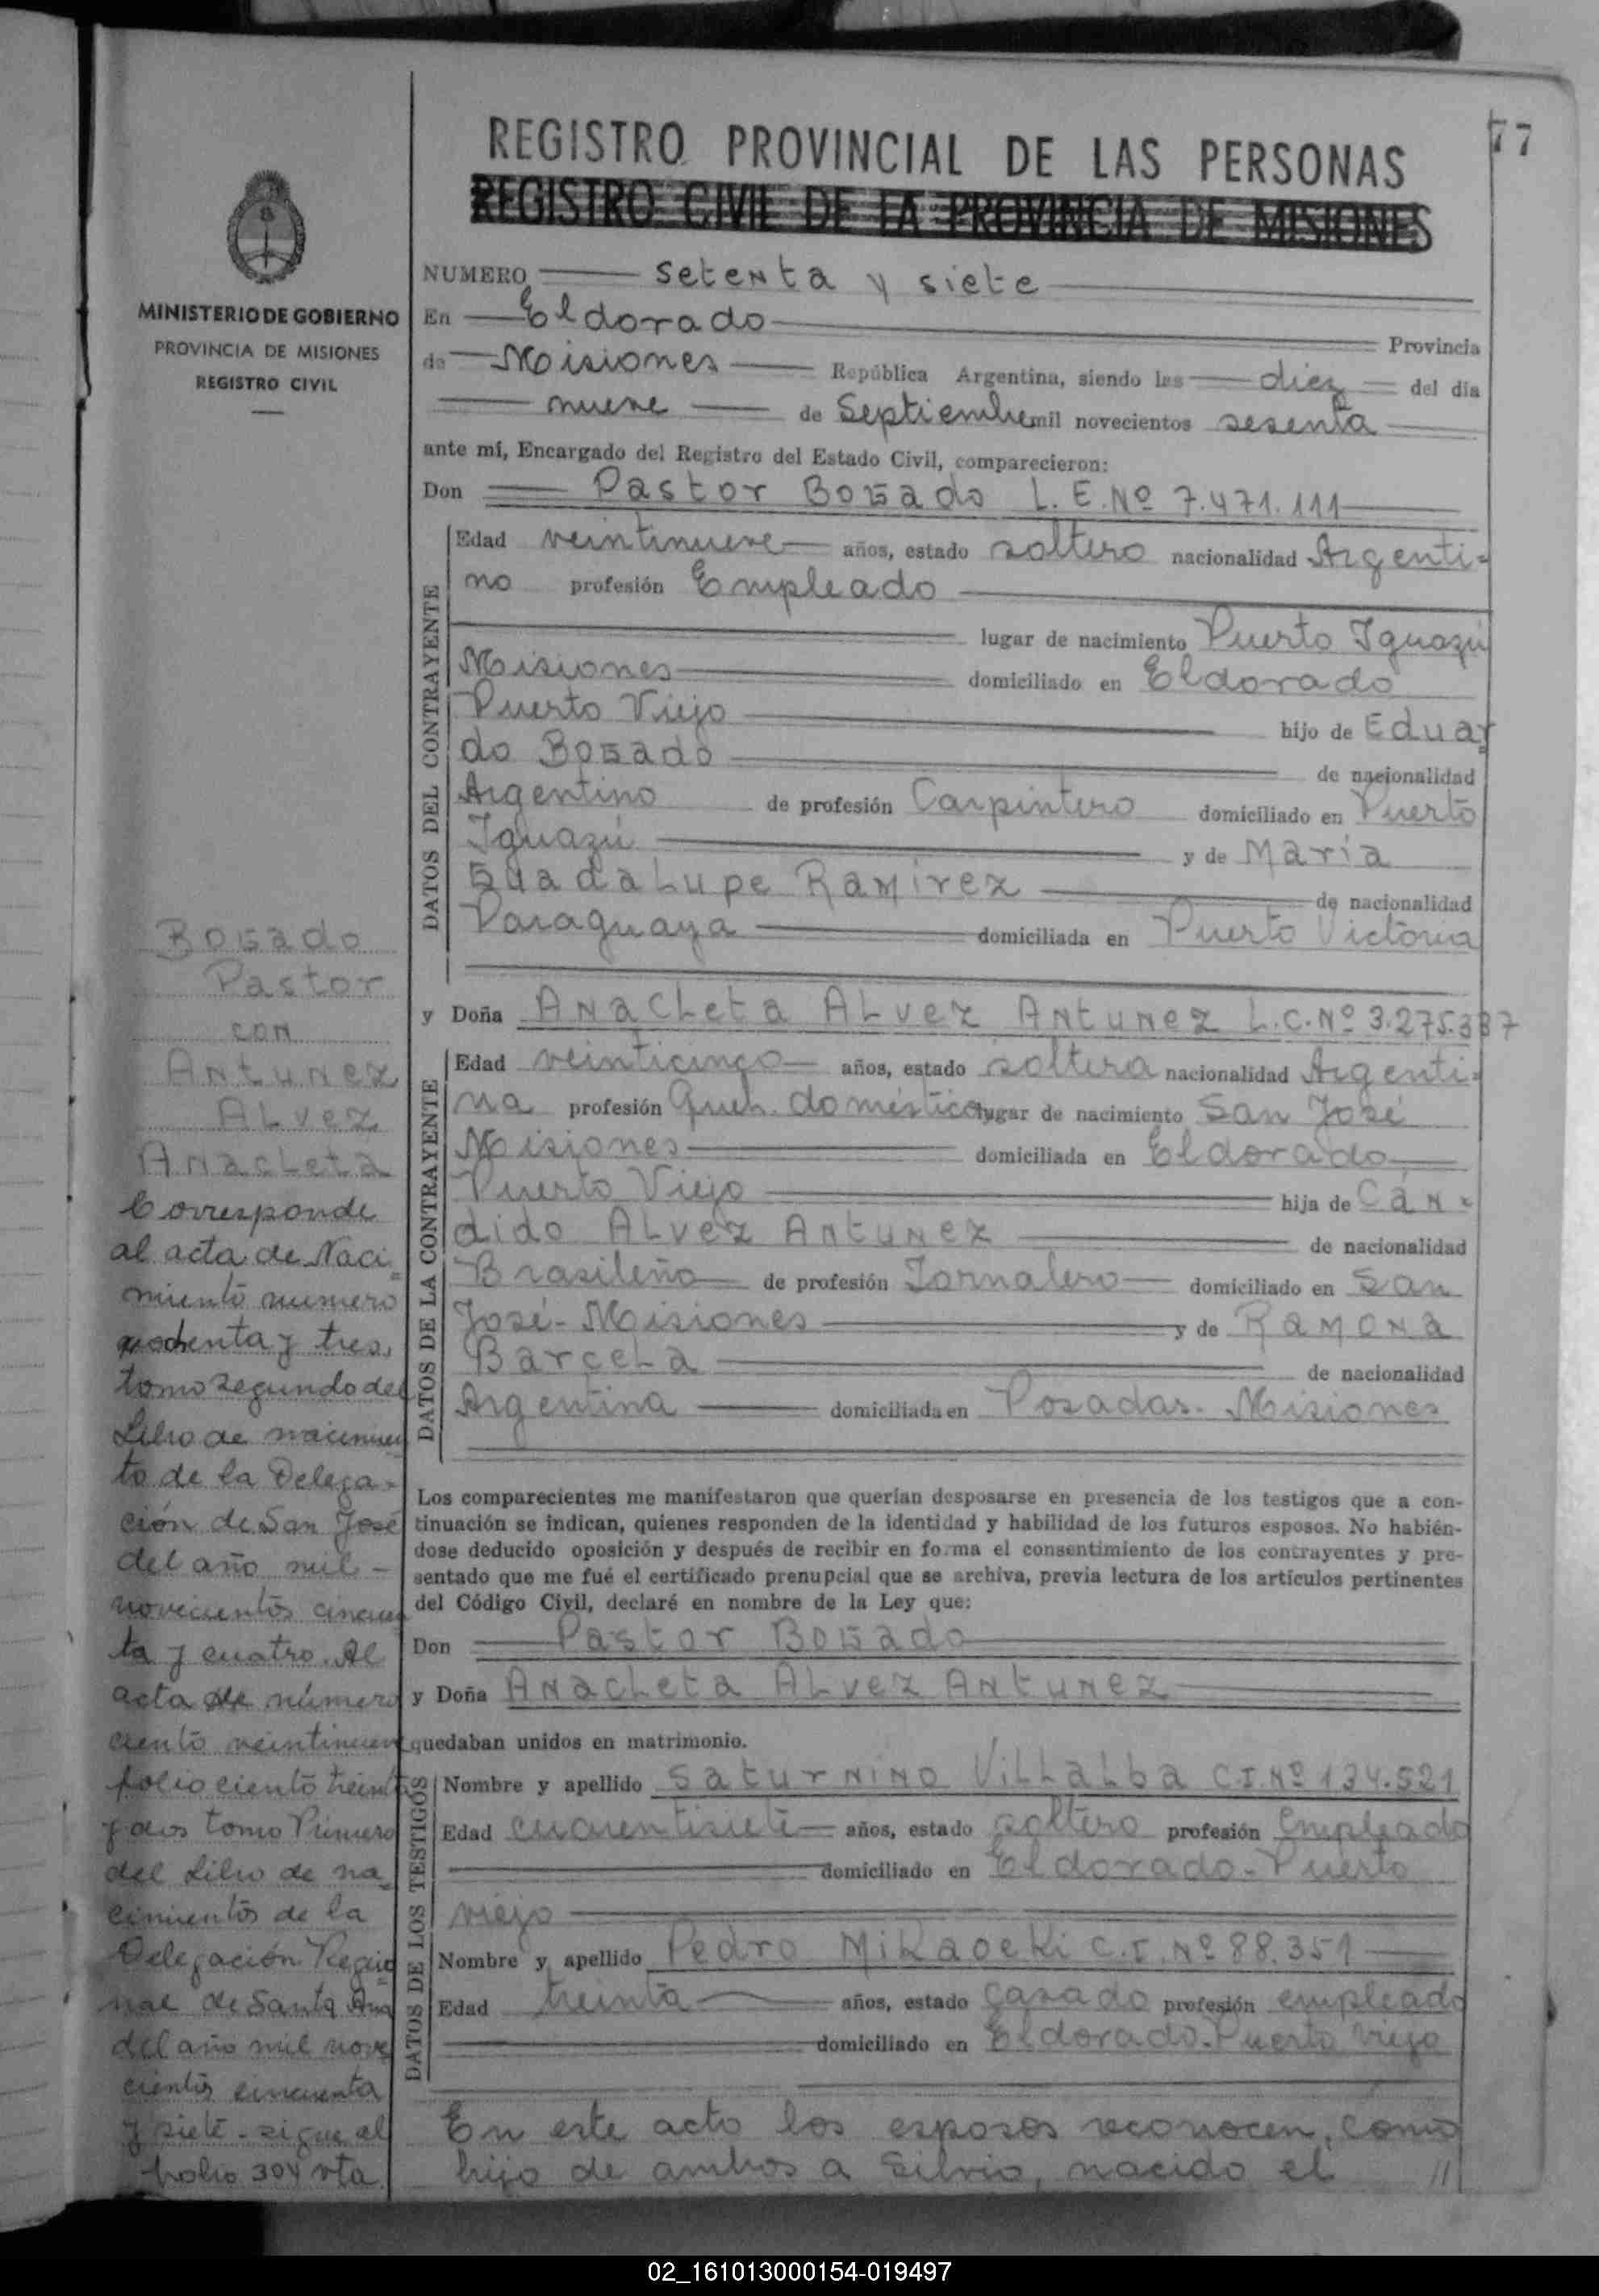 77
REGISTRO PROVINCIAL DE LAS PERSONAS
REGISTRO CIVIL DE LA PROVINCIA DE MISIONES
MINISTERIO DE GOBIERNO
PROVINCIA DE MISIONES
REGISTRO CIVIL
NUMERO setenta y siete
En Eldorado Provincia
de Misiones República Argentina, siendo las diez del día
nueve de Septiembre mil novecientos sesenta
ante mí, Encargado del Registro del Estado Civil, comparecieron:
Don Pastor Bogado L.E.Nº 7.471.111
DATOS DEL CONTRAYENTE
Edad veintinueve años, estado soltero nacionalidad Argenti-
no profesión Empleado
lugar de nacimiento Puerto Iguazú
Misiones domiciliado en Eldorado
Puerto Viejo hijo de Eduar
do Bogado de nacionalidad
Argentino de profesión Carpintero domiciliado en Puerto
Iguazú y de María
Guadalupe Ramírez de nacionalidad
Paraguaya domiciliada en Puerto Victoria
y Doña Anacleta Alvez Antunez L.C.Nº 3.275.337
DATOS DE LA CONTRAYENTE
Edad veinticinco años, estado soltera nacionalidad Argenti-
na profesión Queh. doméstico lugar de nacimiento San José
Misiones domiciliada en Eldorado
Puerto Viejo hija de Cán-
dido Alvez Antunez de nacionalidad
Brasileño de profesión Jornalero domiciliado en San
José - Misiones y de Ramona
Barcela de nacionalidad
Argentina domiciliada en Posadas - Misiones
Los comparecientes me manifestaron que querían desposarse en presencia de los testigos que a con-
tinuación se indican, quienes responden de la identidad y habilidad de los futuros esposos. No habién-
dose deducido oposición y después de recibir en forma el consentimiento de los contrayentes y pre-
sentado que me fué el certificado prenupcial que se archiva, previa lectura de los artículos pertinentes
del Código Civil, declaré en nombre de la Ley que:
Don Pastor Bogado
y Doña Anacleta Alvez Antunez
quedaban unidos en matrimonio.
DATOS DE LOS TESTIGOS
Nombre y apellido Saturnino Villalba C.I.Nº 134.521
Edad cuarentisiete años, estado soltero profesión Empleado
domiciliado en Eldorado - Puerto
viejo
Nombre y apellido Pedro Mikaoeki C.I.Nº 88.351
Edad treinta años, estado casado profesión empleado
domiciliado en Eldorado - Puerto viejo
En este acto los esposos reconocen, como
hijo de ambos a Silvio, nacido el //
Bogado
Pastor
con
Antunez
Alvez
Anacleta
Corresponde
al acta de Naci-
miento numero
ochenta y tres,
tomo segundo del
Libro de nacimien
to de la Delega-
ción de San José
del año mil -
novecientos cincuen
ta y cuatro. Al
acta de número
ciento veintinueve
folio ciento treinta
y dos tomo Primero
del Libro de na-
cimientos de la
Delegación Regio
nal de Santa Ana
del año mil nove
cientos cincuenta
y siete - sigue al
folio 304 vta
02_161013000154-019497